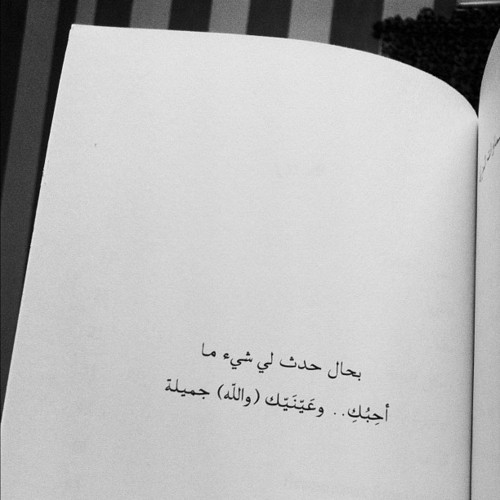 بحال حدث لي شيء ما
أحِبُكِ.. وعَيّنَيّك (والله) جميلة